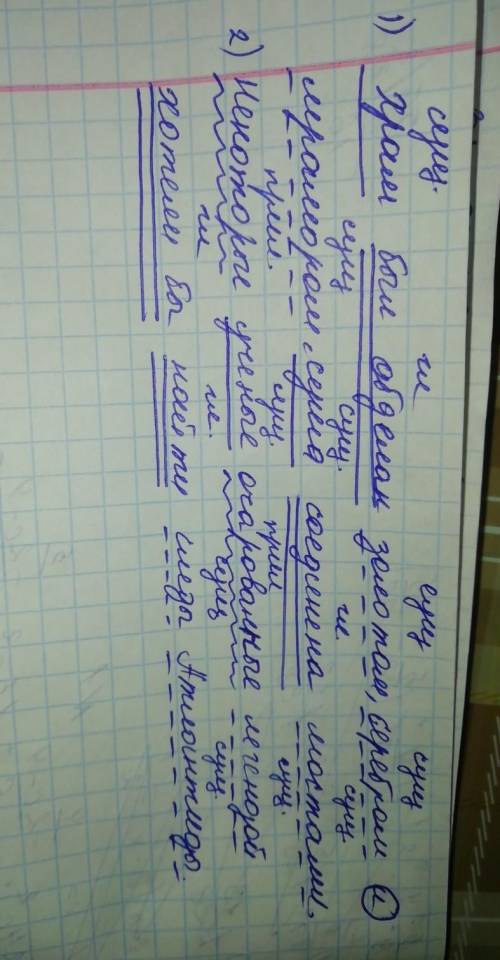 сущ. гл сущ сущ
1) Храм был отделан золотом, серебром (1)
сущ сущ. гл. сущ
мрамором, серия соединена мостами.
прил. сущ. прил сущ.
2) Некоторые ученые очарованные легендой
гл гл. сущ сущ.
хотели бы найти следы Атлантиды.